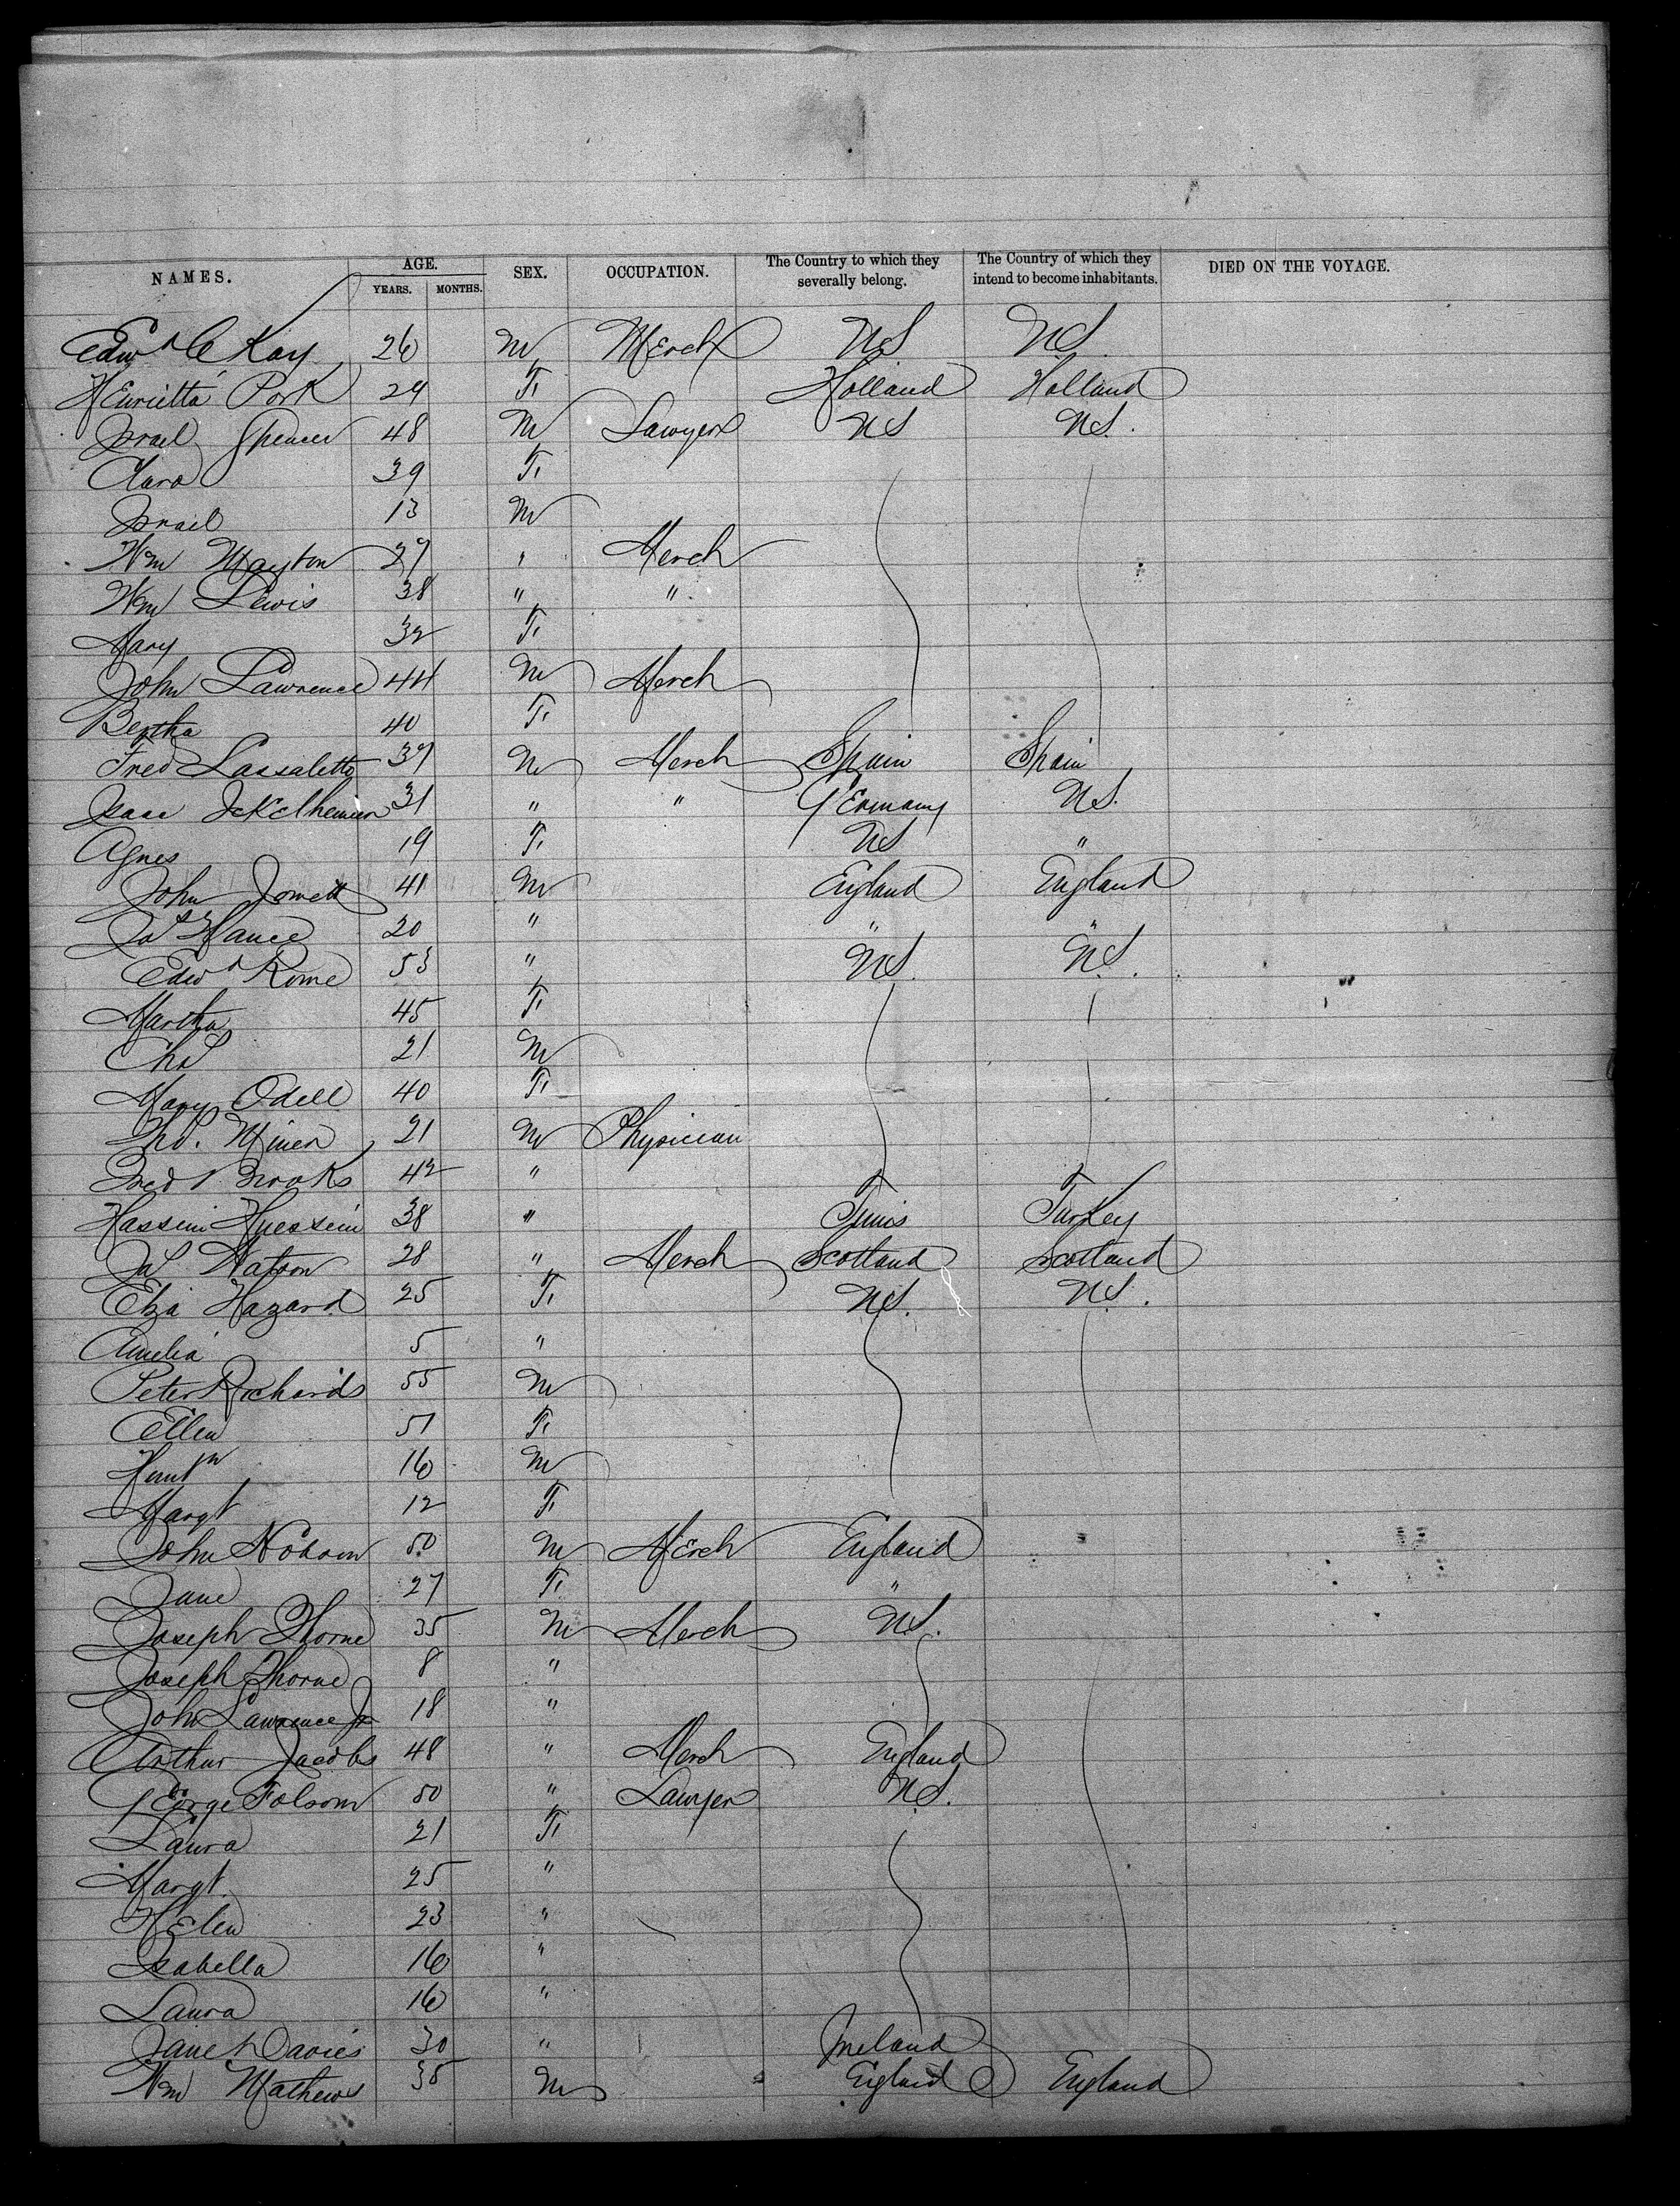 NAMES. AGE. SEX. OCCUPATION. The Country to which they severally belong. The Country of which they intend to become inhabitants. DIED ON THE VOYAGE.
YEARS. MONTHS.
Edwd C Kay 26 M Merch US US
Henrietta Pork 29 F. Holland Holland
Israel Spencer 48 M Lawyer US US.
Clara 39 F.
Israel 13 M
Wm Mayton 27 " Merch
Wm Lewis 38 " "
Mary 32 F.
John Lawrence 44 M Merch
Bertha 40 F.
Fred Lassaletta 37 M Merch Spain Spain
Isaac Ickelheimer 31 " " Germany US.
Agnes 19 F. US "
John Jowett 41 M England England
Jas Hance 20 " " "
Edwd Rome 53 " US. US.
Martha 45 F.
Chas 21 M
Mary Odell 40 F.
Thos. Miner 21 M Physician
Fred Brooks 42 "
Hassein Huessein 38 " Tunis Turkey
Jas Watson 28 " Merch Scotland Scotland
Eliza Hazard 25 F. US. US.
Amelia 5 "
Peter Richards 55 M
Ellen 51 F.
16 M
Margt 12 F.
John Hobson 50 M Merch England
Jane 27 F. "
Joseph Thorne 35 M Merch US.
Joseph Thorne 8 "
John Lawrence Jr 18 "
Arthur Jacobs 48 " Merch England
George Folsom 50 " Lawyer US.
Laura 21 F.
Margt. 25 "
Helen 23 "
Isabella 16 "
Laura 16 "
Janet Davies 30 " Ireland
Wm Mathews 35 M England England